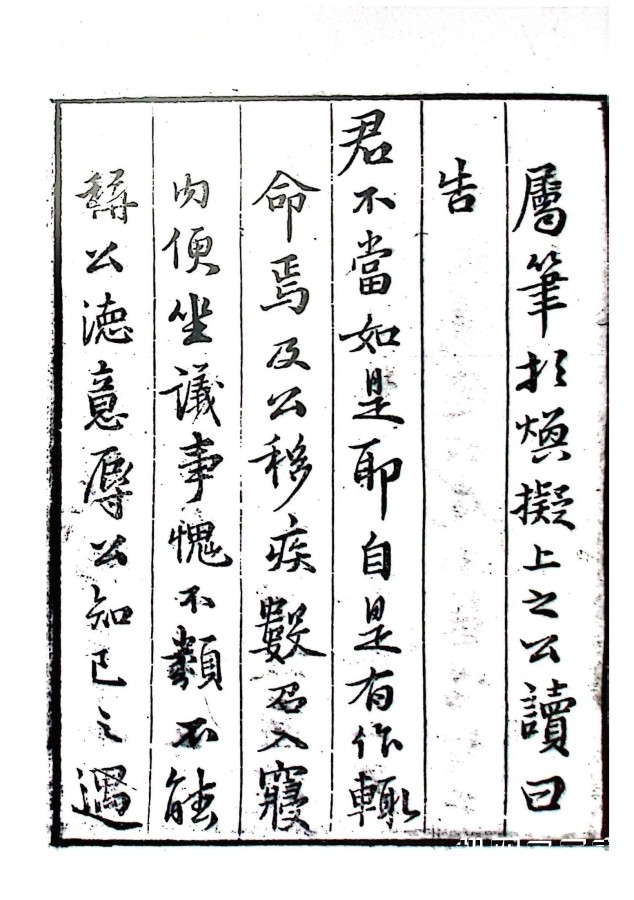 屬筆扵煥擬上之公讀曰
告
君不當如是耶自是有作輙
命焉及公移疾數召入寢
内便坐議事愧不類不能
稱公徳意辱公知已之遇